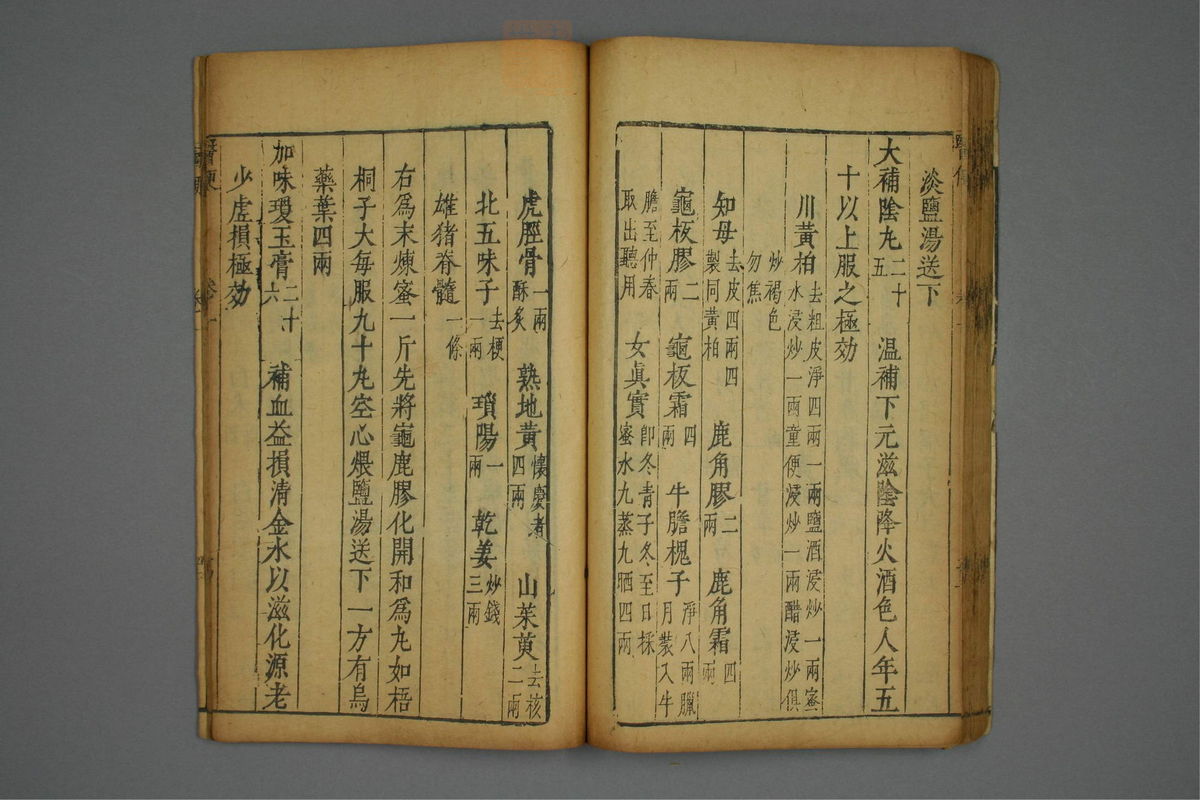 淡鹽湯送下
大補陰丸二十五　温補下元滋陰降火酒色人年五
十以上服之極効
川黄柏去粗皮淨四兩一兩鹽酒浸炒一兩蜜水浸炒一兩童便浸炒一兩醋浸炒俱
炒褐色勿焦
知母去皮四兩四製同黄柏　鹿角膠二兩　鹿角霜四兩
龜板膠二兩　龜板霜四兩　牛膽槐子淨八兩臘月裝入牛
膽至仲春取出聽用　女眞實卽冬青子冬至日採蜜水九蒸九晒四兩
虎脛骨一兩酥炙　熟地黄懷慶者四兩　山茱萸去核二兩
北五味子去梗一兩　瑣陽一兩　乾姜炒錢三兩
雄猪脊髓一條
右爲末煉蜜一斤先將龜鹿膠化開和爲丸如梧
桐子大每服九十丸空心煖鹽湯送下一方有烏
藥葉四兩
加味瓊玉膏二十六　補血益損清金水以滋化源老
少虛損極効